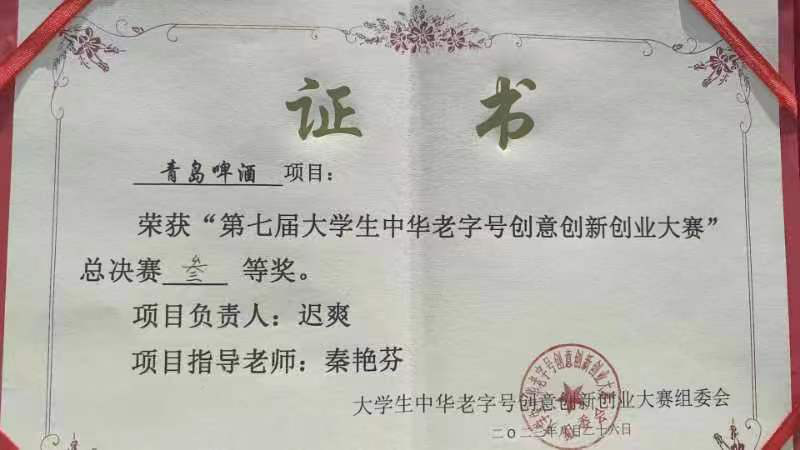 证 书
青岛啤酒 项目：
荣获“第七届大学生中华老字号创意创新创业大赛”
总决赛 叁 等奖。
项目负责人：迟爽
项目指导老师：秦艳芬
大学生中华老字号创意创新创业大赛组委会
二〇二三年八月二十六日